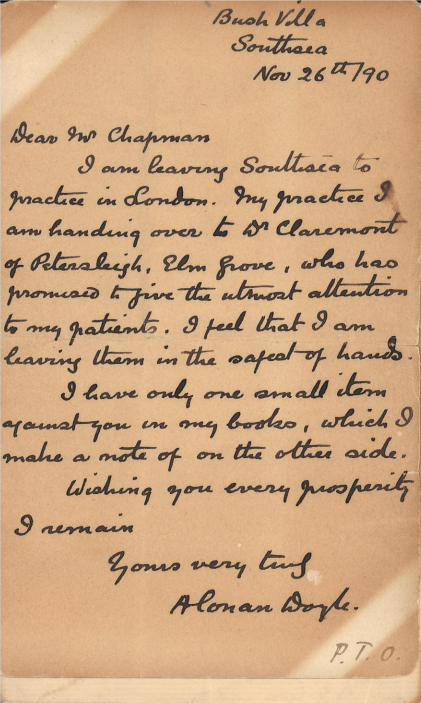 Bush Villa
Southsea
Nov 26th/90
Dear Mr Chapman
I am leaving Southsea to
practice in London. My practice I
am handing over to Dr Claremont
of Petersleigh, Elm Grove, who has
promised to give the utmost attention
to my patients. I feel that I am
leaving them in the safest of hands.
I have only one small item
against you in my books, which I
make a note of on the other side.
Wishing you every prosperity
I remain
Yours very truly
A Conan Doyle.
P.T.O.